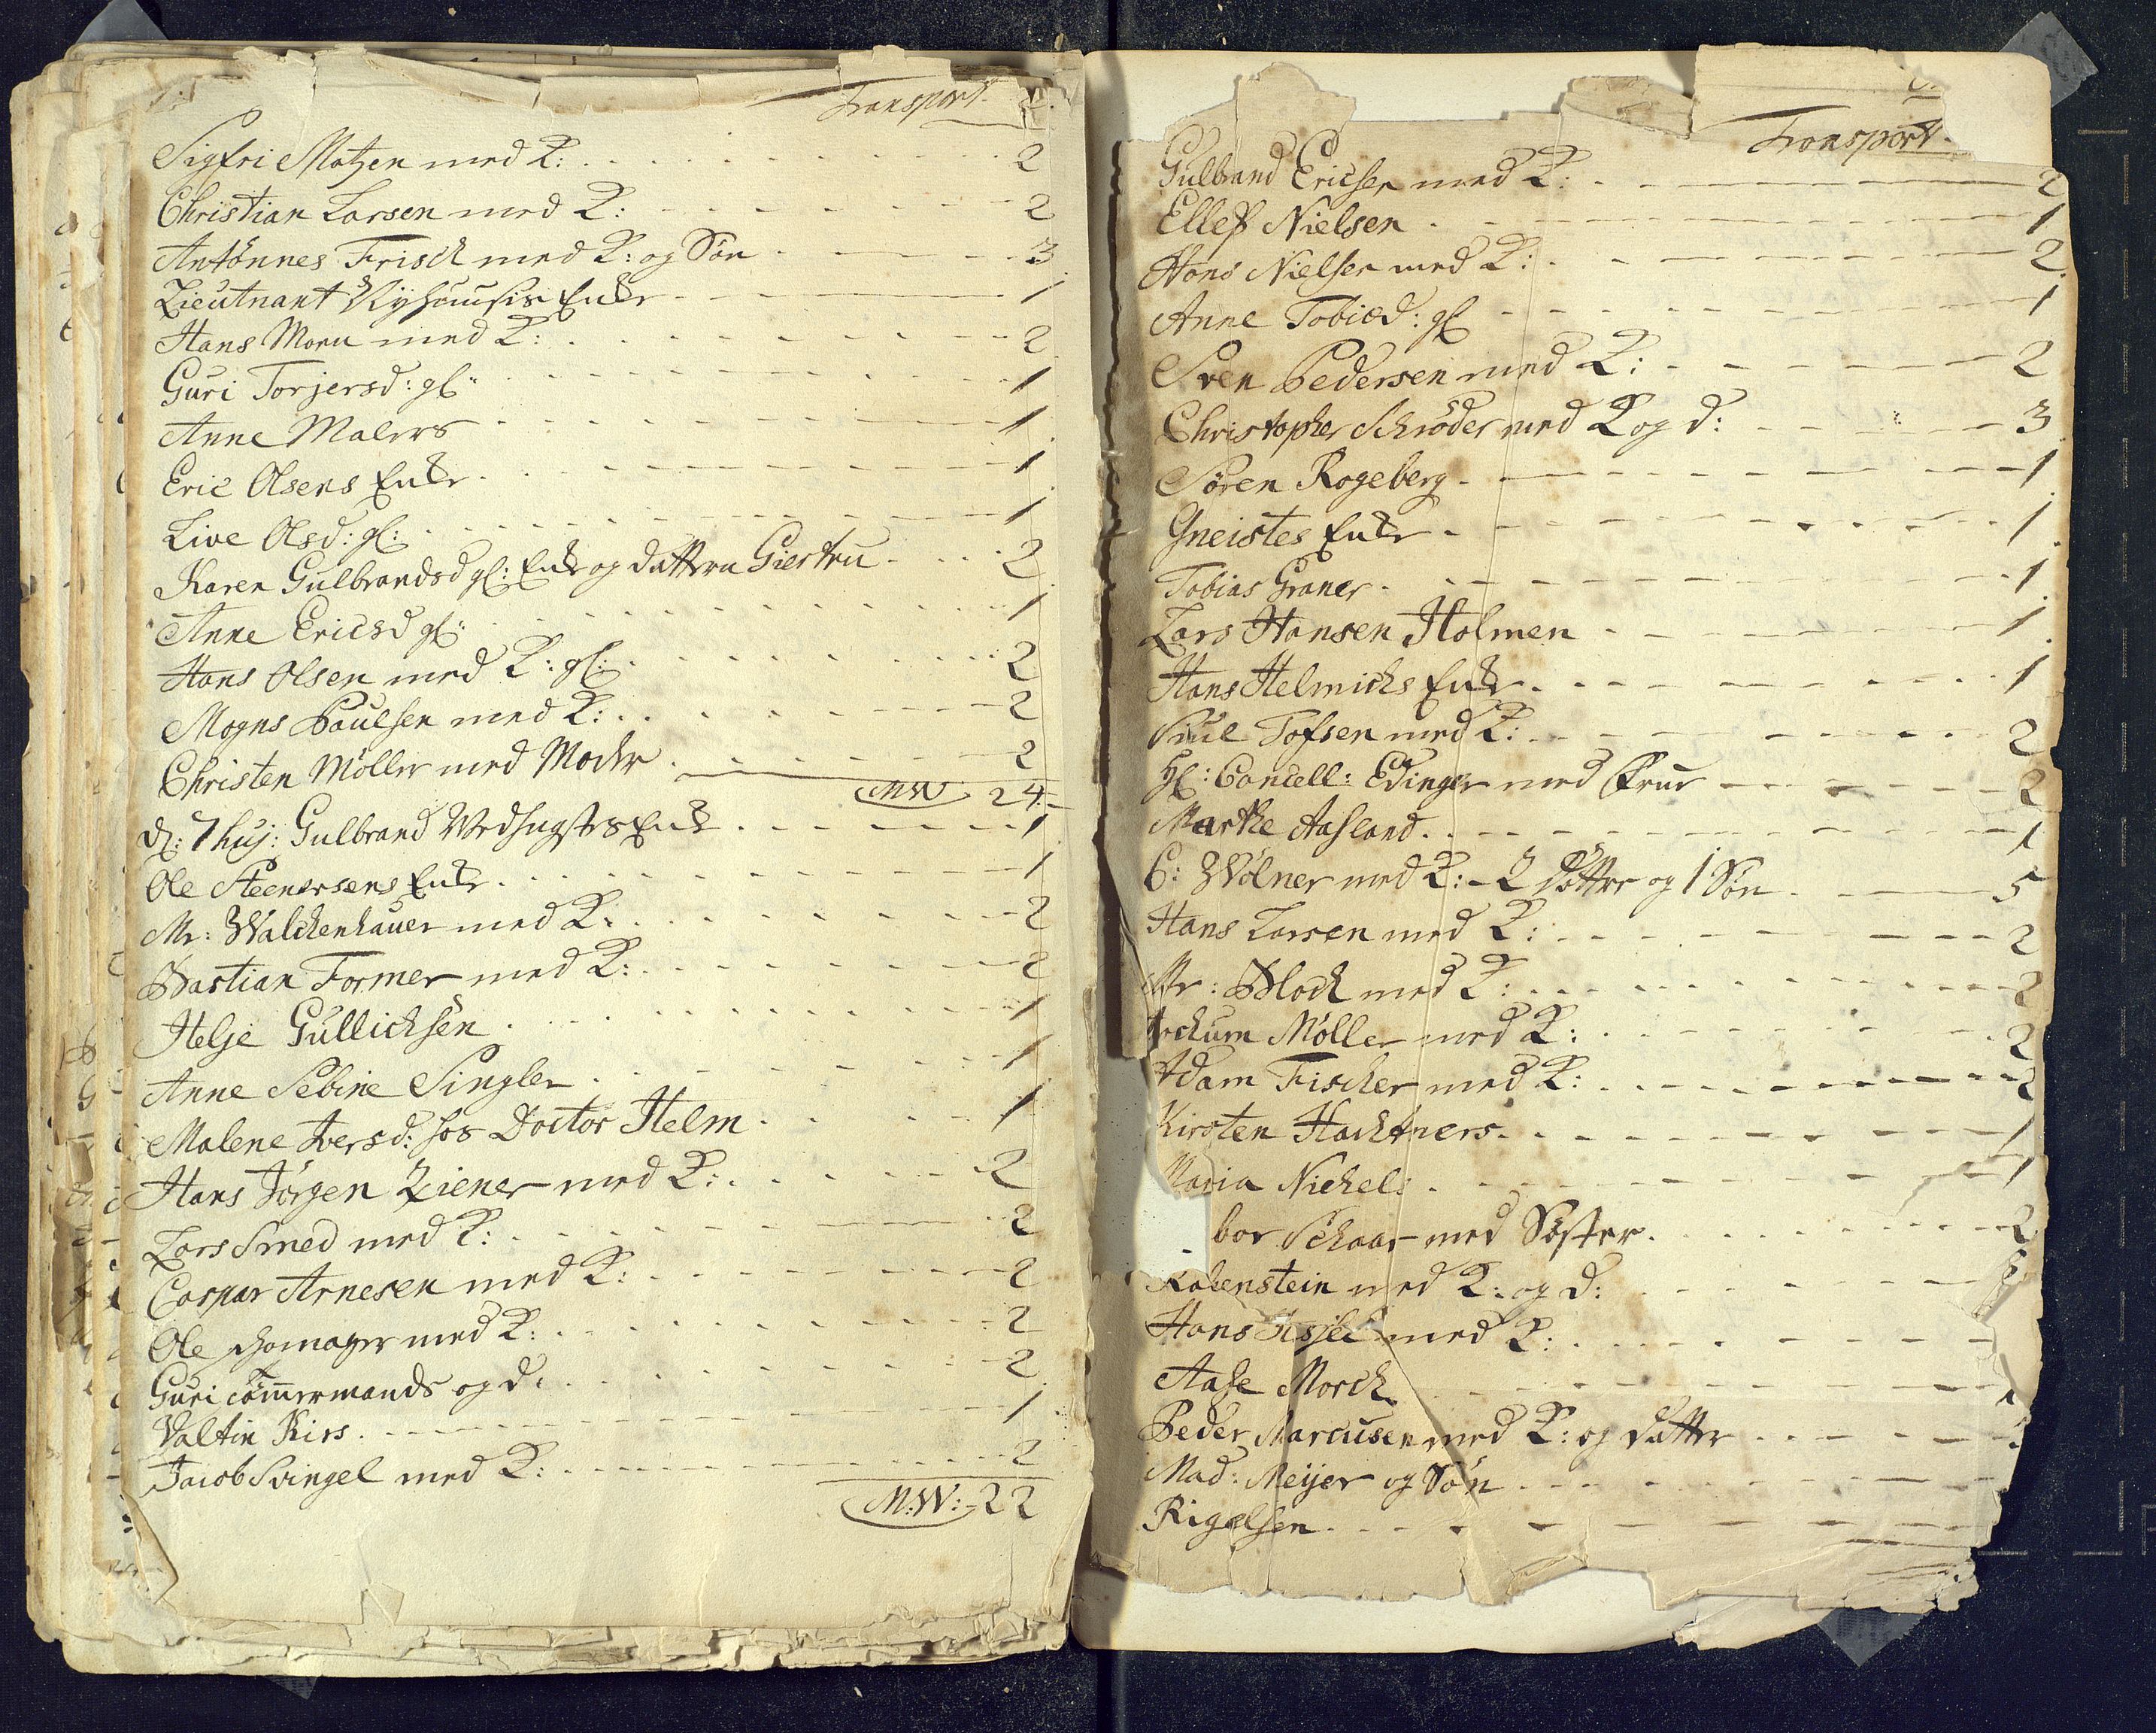 Transport. 2.
Sigfri Matzen med K: 2
Christian Larsen med K: 2
Antönnes Frisch med K: og Søn 3
Lieutnant Enke 1
Hans Moru med K: 2
Guri Torjersd: gl: 1
Anne Malers 1
Eric Olsens Enke 1
Live Olsd: gl: 1
Karen Gulbrandsd gl: Enke og datteren Giertru 2
Anne Ericsd gl: 1
Hans Olsen med K: gl: 2
Mogns Paulsen med K: 2
Christen Möller med Moder 2
MW 24
d: 7 huj: Gulbrand Enke 1
Ole Steenersens Enke 1
Mr: Walckenhauer med K: 2
Bastian Former med K: 2
Helje Gullichsen 1
Anne Sebine Singler 1
Malene Iversd: hos Doctor Helm 1
Hans Jörgen Ziener med K: 2
Lars Smed med K: 2
Caspar Arnesen med K: 2
Ole med K: 2
Guri Tömmermands og d: 2
Valtin Kiis 1
Jacob Svingel med K: 2
M:W: 22
Transport.
Gulbrand Ericsen med K: 2
Ellef Nielsen 1
Hans Nielsen med K: 2
Anne Tobiæd: gl 1
Sven Pedersen med K: 2
Christopher Schröder med K og d: 3
Sören Rogeberg 1
Gneistes Enke 1
Tobias Graner 1
Lars Hansen Holmen 1
Hans Helmichs Enke 1
Poul Tofsen med K: 2
Hr: Cancell: Edinger med Frue 2
Marthe Aasland 1
C: Wölner med K: 2 Døttre og 1 Søn 5
Hans Larsen med K: 2
Mr: Block med K: 2
Jochum Möller med K: 2
Adam Fischer med K: 2
Kirsten Hachtners 1
Maria Nichels 1
bor Schaar med Søster 2
Rabenstein med K: og d:
Hans med K:
Aase Morck
Peder Marcusen med K: og datter
Mad: Meijer og Søn
Rigelsen